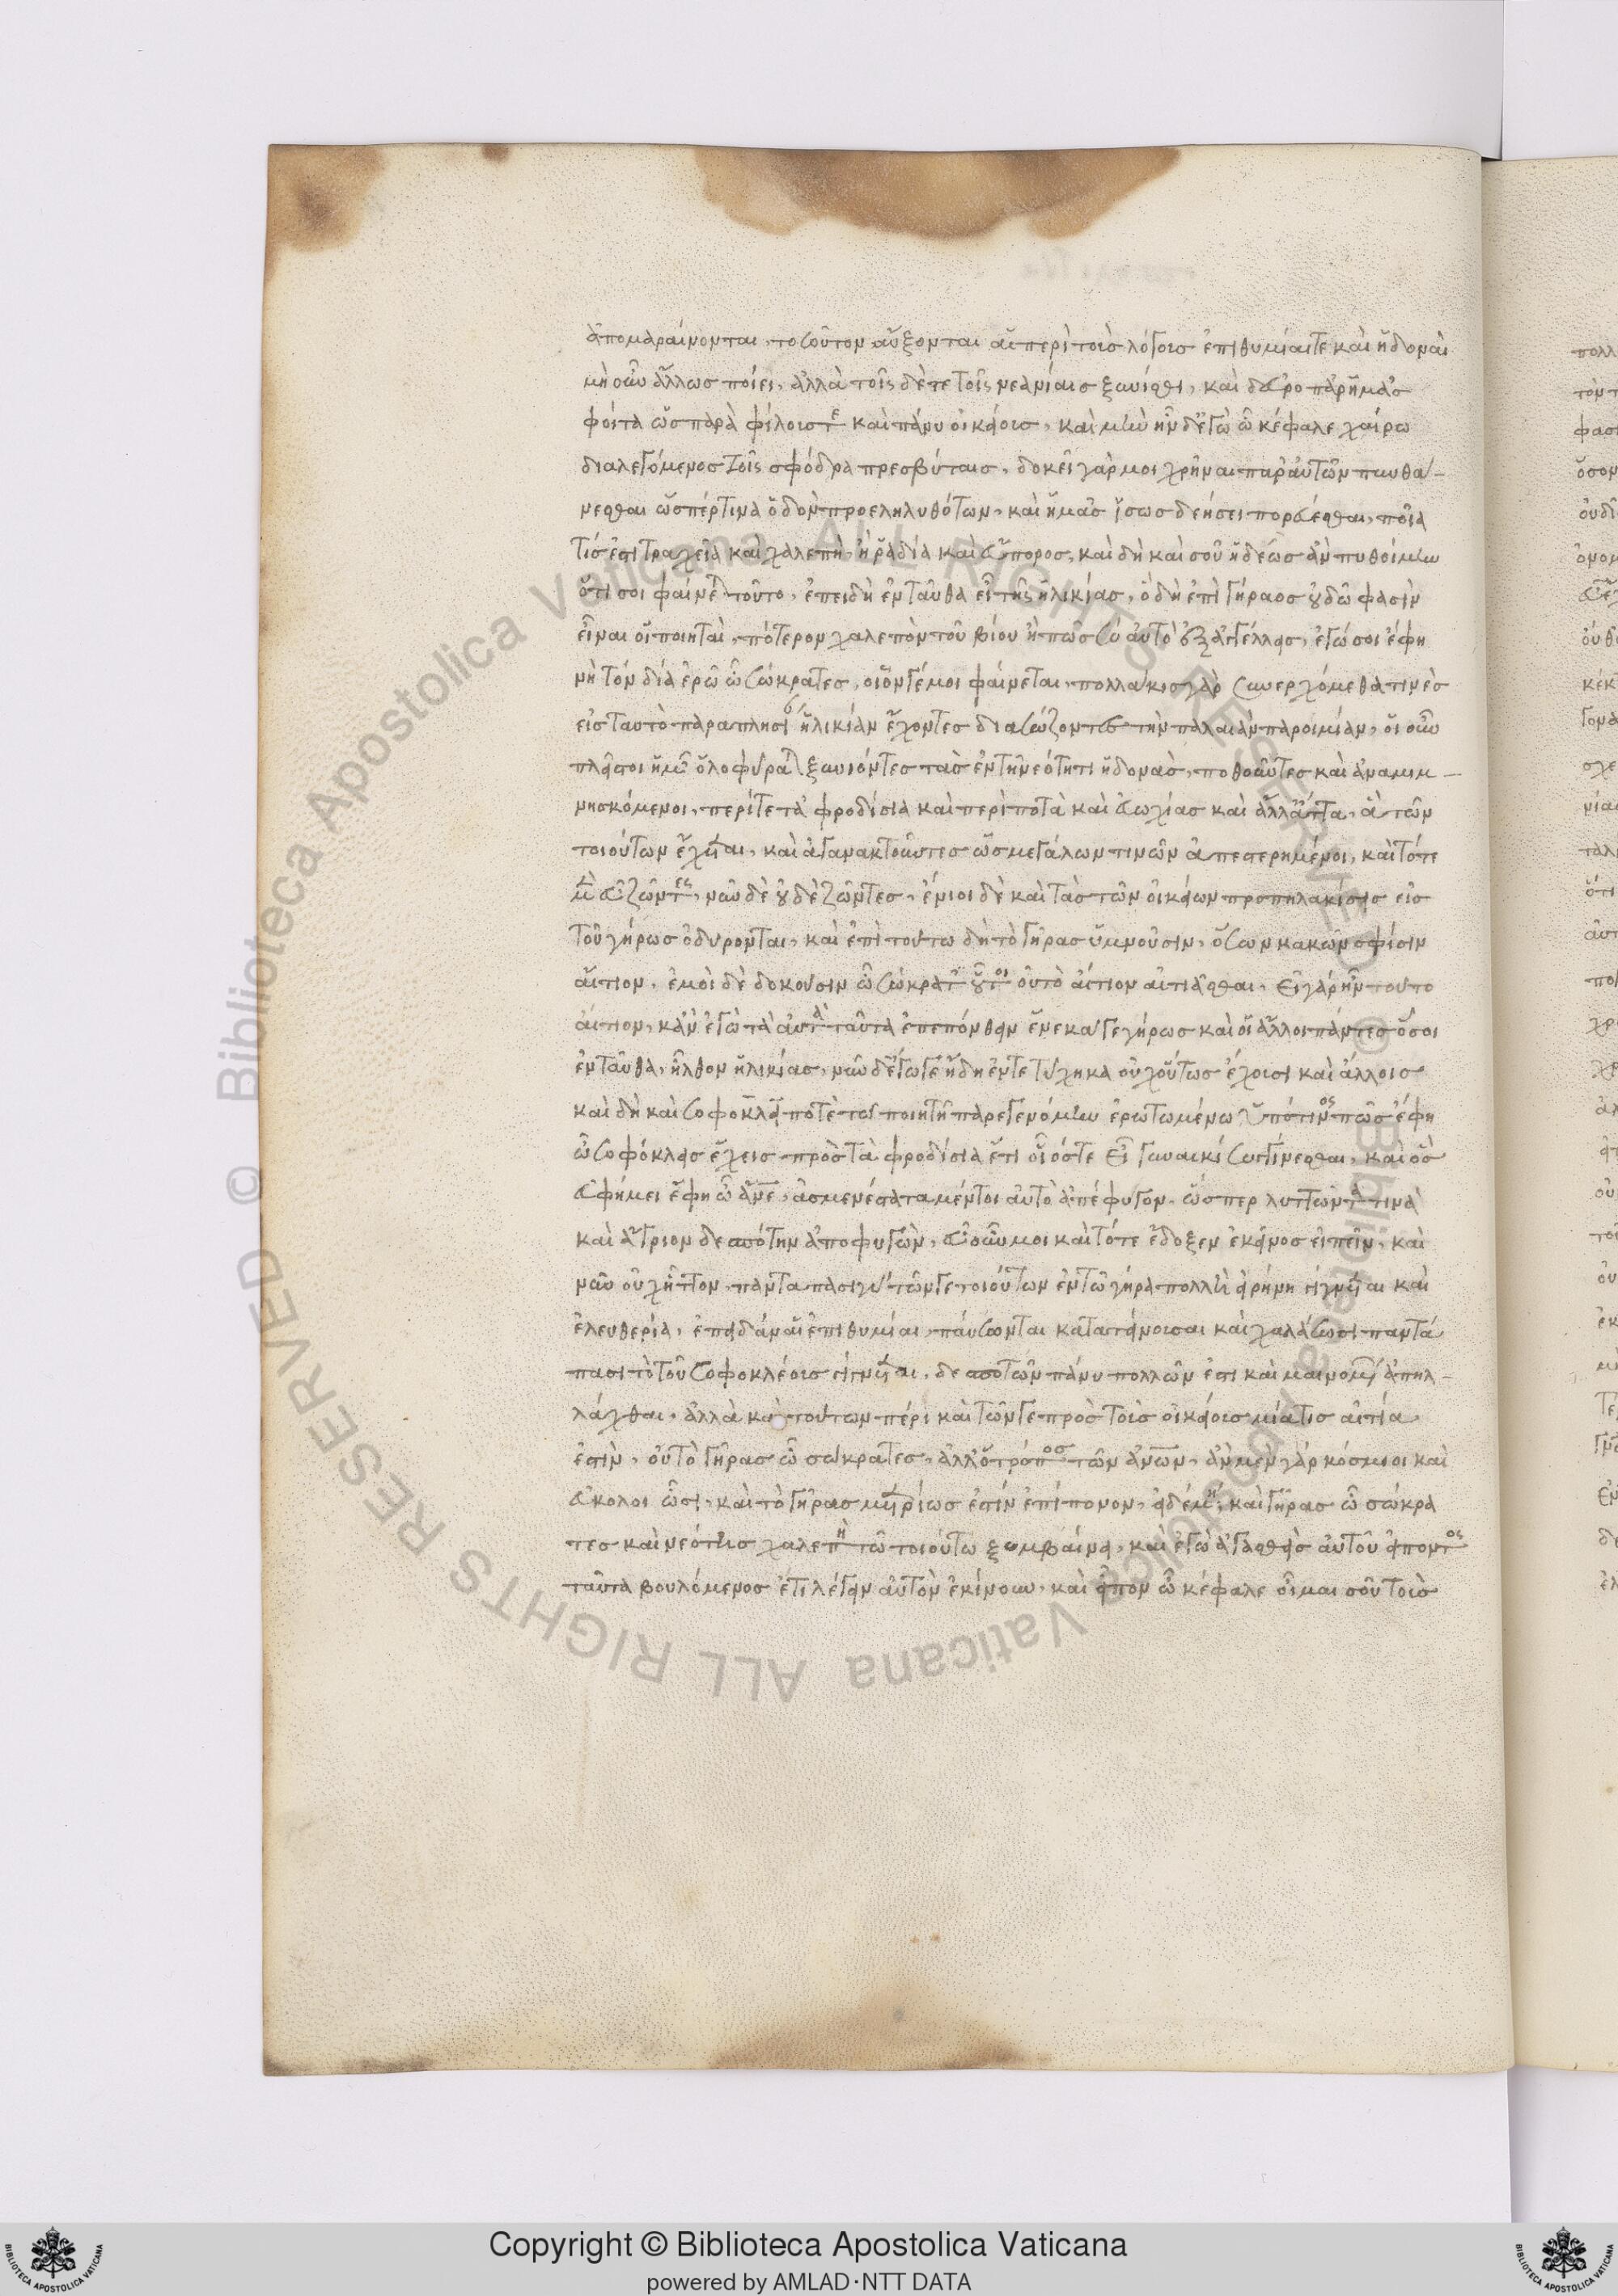 ἀπομαραίνονται, τοσοῦτον αὔξονται αἱ περὶ τοὺς λόγους ἐπιθυμίαι τε καὶ ἡδοναί
μὴ οὖν ἄλλως ποίει, ἀλλὰ τοῖς δέ τε τοῖς νεανίαις ξύνισθι, καὶ δεῦρο παρ' ἡμᾶς
φοίτα ὡς παρὰ φίλους τε καὶ πάνυ οἰκείους, καὶ μὴν ἦν δ' ἐγὼ ὦ κέφαλε χαίρω
διαλεγόμενος τοῖς σφόδρα πρεσβύταις, δοκεῖ γάρ μοι χρῆναι παρ' αὐτῶν πυνθά-
νεσθαι ὥσπερ τινὰ ὁδὸν προεληλυθότων, καὶ ἡμᾶς ἴσως δεήσει πορεύεσθαι, ποία
τίς ἐστι τραχεῖα καὶ χαλεπὴ, ἢ ῥαδία καὶ εὔπορος, καὶ δὴ καὶ σοῦ ἡδέως ἂν πυθοίμην
ὅ τι σοι φαίνεται τοῦτο, ἐπειδὴ ἐνταῦθα εἶ τῆς ἡλικίας, ὃ δὴ ἐπὶ γήραος οὐδῷ φασὶν
εἶναι οἱ ποιηταὶ, πότερον χαλεπὸν τοῦ βίου ἢ πῶς σὺ αὐτὸ ἐξαγγέλλεις, ἐγώ σοι ἔφη
νὴ τὸν δία ἐρῶ ὦ σώκρατες, οἷόν γέ μοι φαίνεται, πολλάκις γὰρ συνερχόμεθα τινὲς
εἰς ταυτὸ παραπλησίαν ἡλικίαν ἔχοντες διασώζοντες τὴν παλαιὰν παροιμίαν, οἱ οὖν
πλεῖστοι ἡμῶν ὀλοφύρονται ξυνιόντες τὰς ἐν τῇ νεότητι ἡδονὰς, ποθοῦντες καὶ ἀναμιμ-
νησκόμενοι, περί τε τἀφροδίσια καὶ περὶ πότα καὶ εὐωχίας καὶ ἄλλ' ἄττα, ἃ τῶν
τοιούτων ἔχεται, καὶ ἀγανακτοῦντες ὡς μεγάλων τινῶν ἀπεστερημένοι, καὶ τότε
μὲν εὖ ζῶντες, νῦν δὲ οὐδὲ ζῶντες, ἔνιοι δὲ καὶ τὰς τῶν οἰκείων προπηλακίσεις εἰς
τοῦ γήρως ὀδύρονται, καὶ ἐπὶ τούτω δὴ τὸ γῆρας ὑμνοῦσιν, ὅσων κακῶν σφίσιν
αἴτιον, ἐμοὶ δὲ δοκοῦσιν ὦ σώκρατες οὗτοι οὐ τὸ αἴτιον αἰτιᾶσθαι, εἰ γὰρ ἦν τοῦτο
αἴτιον, κἂν ἐγὼ τὰ αὐτὰ ταῦτα ἐπεπόνθειν ἕνεκά γε γήρως καὶ οἱ ἄλλοι πάντες ὅσοι
ἐνταῦθα, ἦλθον ἡλικίας, νῦν δ' ἔγωγε ἤδη ἐντετύχηκα οὐχ οὕτως ἔχουσι καὶ ἄλλοις
καὶ δὴ καὶ σοφοκλεῖ ποτὲ τῷ ποιητῇ παρεγενόμην ἐρωτωμένω ὑπό τινος πῶς ἔφη
ὦ σοφόκλεις ἔχεις πρὸς τἀφροδίσια ἔτι οἷός τε εἶ γυναικί συγγίνεσθαι, καὶ ὃς
εὐφήμει ἔφη ὦ ἄνε, ἀσμενέστατα μέντοι αὐτὸ ἀπέφυγον, ὥσπερ λυττῶντά τινα
καὶ ἄγριον δεσπότην ἀποφυγὼν, εὖ οὖν μοι καὶ τότε ἔδοξεν ἐκεῖνος εἰπεῖν, καὶ
νῦν οὐχ ἧττον, παντάπασι γὰρ τῶν γε τοιούτων ἐν τῷ γήρα πολλὴ εἰρήνη γίγνεται καὶ
ἐλευθερία, ἐπειδὰν αἱ ἐπιθυμίαι, παύσωνται κατατείνουσαι καὶ χαλάσωσι παντά
πασι τὸ τοῦ σοφοκλέους γίγνεται, δεσποτῶν πάνυ πολλῶν ἐστι καὶ μαινομένων ἀπηλ-
λάχθαι, ἀλλὰ καὶ τούτων πέρι καὶ τῶν γε πρὸς τοὺς οἰκείους μία τις αἰτία
ἐστὶν, οὐ τὸ γῆρας ὦ σώκρατες, ἀλλ' ὁ τρόπος τῶν ἀνων, ἂν μὲν γὰρ κόσμιοι καὶ
εὔκολοι ὦσι, καὶ τὸ γῆρας μετρίως ἐστίν ἐπίπονον, εἰ δὲ μὴ, καὶ γῆρας ὦ σώκρα
τες καὶ νεότης χαλεπὴ τῷ τοιούτω ξυμβαίνει, καὶ ἐγὼ ἀγασθεὶς αὐτοῦ εἰπόντος
ταῦτα βουλόμενος ἔτι λέγειν αὐτὸν ἐκίνουν, καὶ εἶπον ὦ κέφαλε οἶμαι σοῦ τοὺς
Copyright © Biblioteca Apostolica Vaticana
powered by AMLAD·NTT DATA